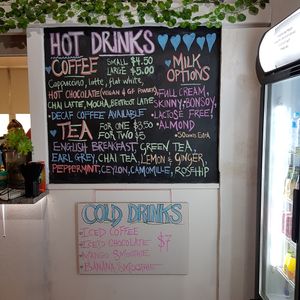 HOT DRINKS
COFFEE SMALL $4.50
LARGE $5.00
Cappuccino, latte, flat white,
HOT CHOCOLATE (VEGAN & GF POWDER)
CHAI LATTE, MOCHA, BEETROOT LATTE
• DECAF COFFEE AVAILABLE
MILK
OPTIONS
• FULL CREAM,
SKINNY, BONSOY,
• LACTOSE FREE,
• ALMOND
50cents Extra
TEA FOR ONE $3.50
FOR TWO $5
ENGLISH BREAKFAST, GREEN TEA,
EARL GREY, CHAI TEA, LEMON & GINGER,
PEPPERMINT, CEYLON, CAMOMILLE, ROSEHIP
COLD DRINKS
• ICED COFFEE
• ICED CHOCOLATE
• MANGO SMOOTHIE
• BANANA SMOOTHIE
$7